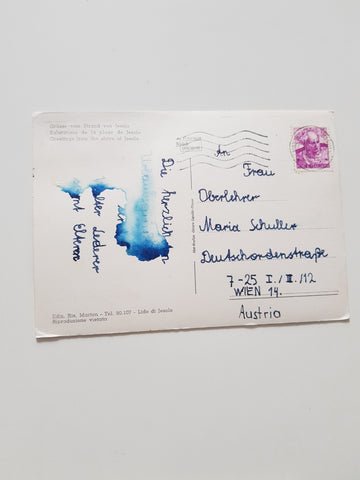 Grüsse vom Strand von Jesolo
Salutations de la plage de Jesolo
Greetings from the shore of Jesolo
Die herzlichsten
Lederer
mit Eltern
An
Frau
Oberlehrer
Maria Schuller
Deutschordenstraße
7-25 I./II./12
WIEN 14.
Austria
Ediz. Ris. Marton - Tel. 90.107 - Lido di Jesolo
Riproduzione vietata